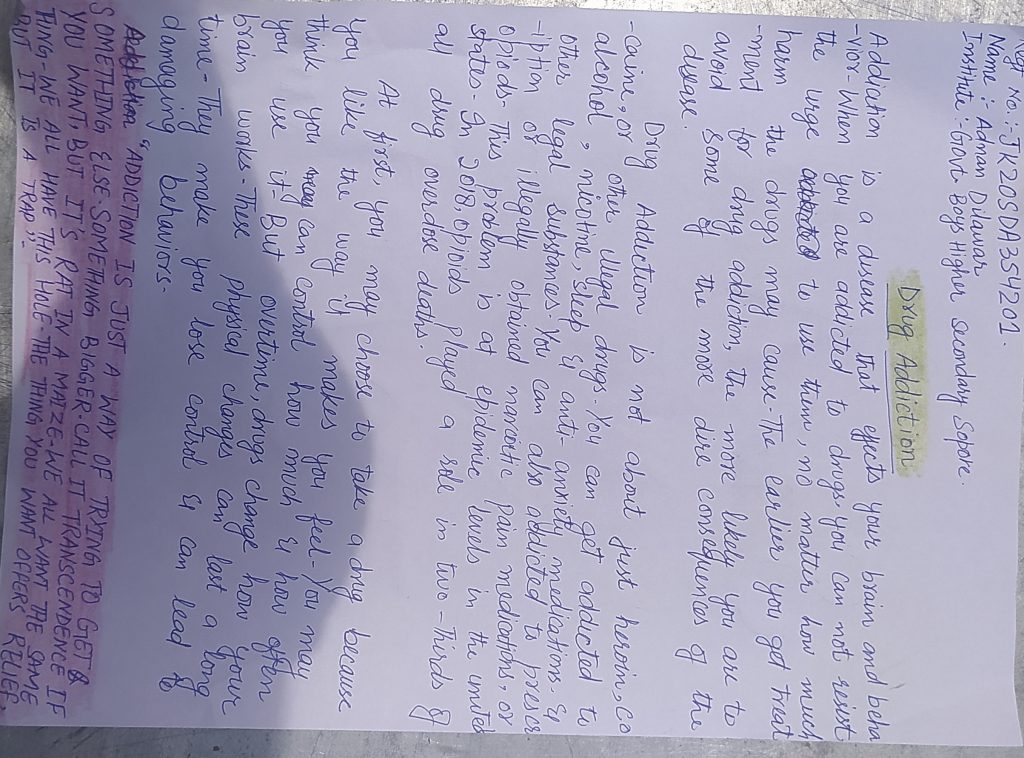 Regt No.:- JK20SDA354201.
Name :- Adnan Dilawar
Institute:- Govt. Boys Higher secondary Sopore.
Drug Addiction
Addiction is a disease that effects your brain and beha
-vior. When you are addicted to drugs, you can not resist
the urge to use them, no matter how much
harm the drugs may cause. The earlier you get treat
-ment for drug addiction, the more likely you are to
avoid some of the more dire consequences of the
disease.
Drug Addiction is not about just heroin, co
-caine, or other illegal drugs. You can get addicted to
alcohol, nicotine, sleep & anti-anxiety medications &
other legal substances. You can also addicted to prescr
-iption or illegally obtained narcotic pain medications, or
opiods. This problem is at epidemic levels in the united
states. In 2018, opioids played a role in two-Thirds of
all drug overdose deaths.
At first, you may choose to take a drug because
you like the way it makes you feel. You may
think you can control how much & how often
you use it. But overtime, drugs change how your
brain works. These physical changes can last a long
time. They make you lose control & can lead to
damaging behaviors.
"ADDICTION IS JUST A WAY OF TRYING TO GET @
SOMETHING ELSE. SOMETHING BIGGER. CALL IT TRANSCENDENCE IF
YOU WANT, BUT IT'S RAT IN A MAIZE. WE ALL WANT THE SAME
THING. WE ALL HAVE THIS HOLE. THE THING YOU WANT OFFERS RELIEF,
BUT IT IS A TRAP".-